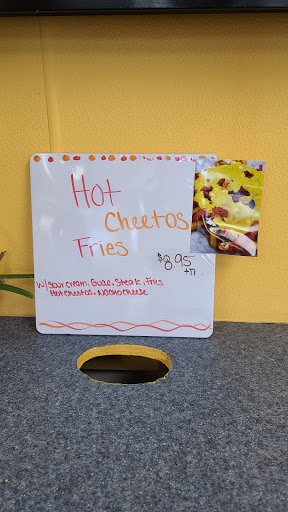 Hot
Cheetos
Fries
$8.95
+TX
w/ Sour cream, Guac, Steak, Fries
Hot cheetos, Nacho cheese